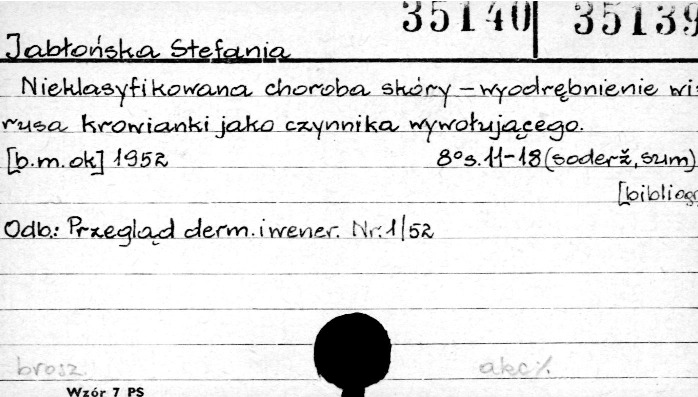 35140 35139
Jabłońska Stefania
Nieklasyfikowana choroba skóry – wyodrębnienie wi-
rusa krowianki jako czynnika wywołującego.
[b.m.ok] 1952 8° s. 11-18 (soderž, sum)
[bibliogr
Odb.: Przegląd derm. i wener. Nr. 1/52
brosz. akc%
Wzór 7 PS